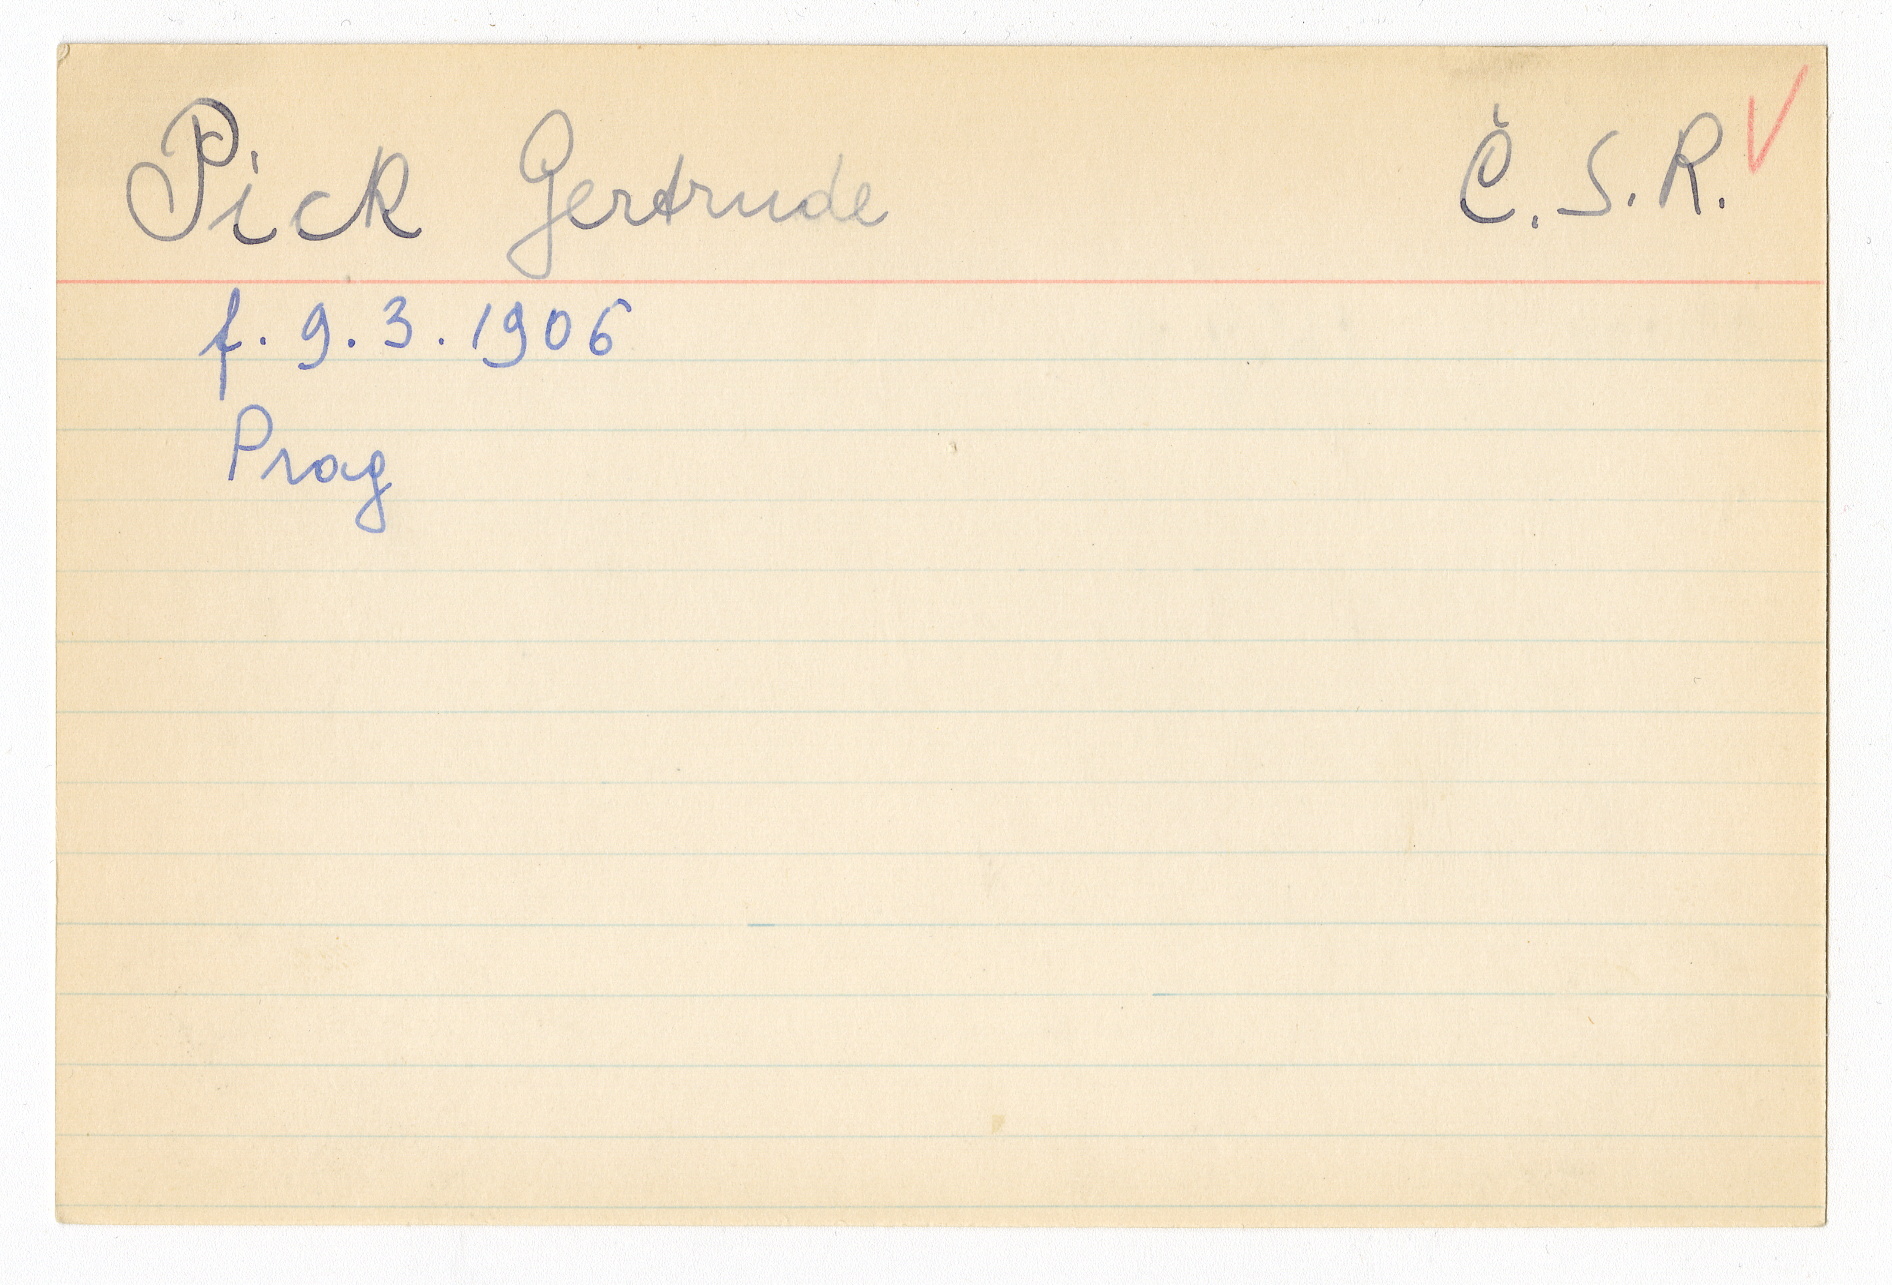 Pick Gertrude Č. S. R.
f. 9. 3. 1906
Prag